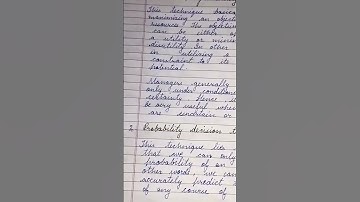 This technique basica
maximising an object
resources. The objective
can be either of
a utility or minim
disutility. In other
in utilising a
constraint to its
potential.
Managers generally
only under condition
certainty hence it
be very useful when
are uncertain or
2. Probability decision t
This technique lies
that we can only
probability of an
other words, we can
accurately predict
of any course of